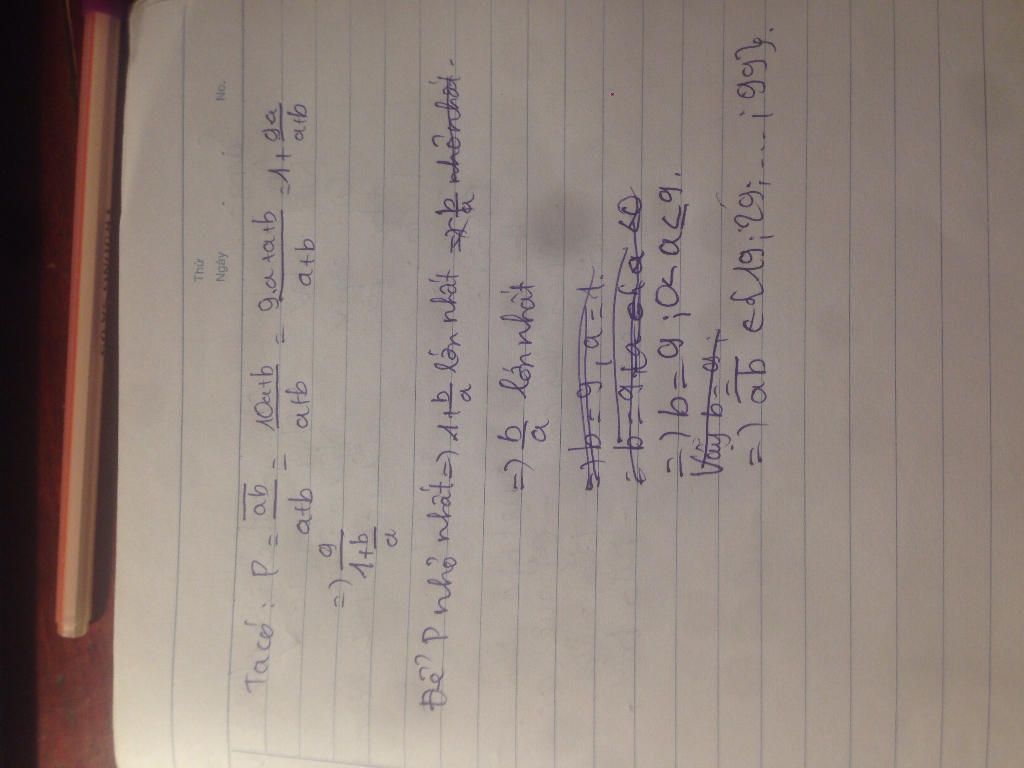 Thứ
Ngày No.
Ta có: P = ab/a+b = 10a+b/a+b = 9a+a+b/a+b = 1+ 9a/a+b
=) 9/1+b/a
Để P nhỏ nhất =) 1+b/a lớn nhất =) b/a nhỏ nhất.
=) b/a lớn nhất
=) b = 9, a = 1.
=) b = 9; 0 < a ≤ 9.
Vậy b = 9;
=) ab ∈ {19; 29; ...; 99}.